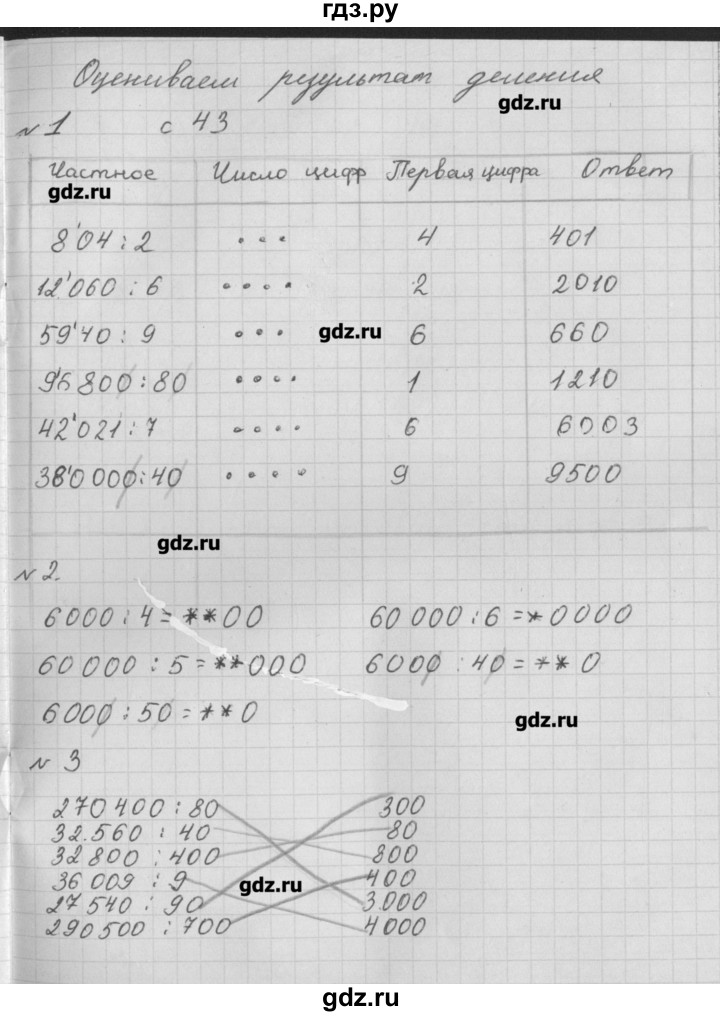 гдз.ру
Оцениваем результат деления
gdz.ru
№ 1 с 43
Частное Число цифр Первая цифра Ответ
gdz.ru
8'04 : 2 • • • 4 401
12'060 : 6 • • • • 2 2010
59'40 : 9 • • • gdz.ru 6 660
96 800 : 80 • • • • 1 1210
42'021 : 7 • • • • 6 6003
38'0 000 : 40 • • • • 9 9500
gdz.ru
№ 2.
6000 : 4 = **00 60 000 : 6 = *0000
60 000 : 5 = **000 6000 : 40 = **0
6000 : 50 = **0
gdz.ru
№ 3
270 400 : 80 300
32.560 : 40 80
32 800 : 400 800
36 009 : 9 gdz.ru 400
27 540 : 90 3.000
290 500 : 700 4000
gdz.ru